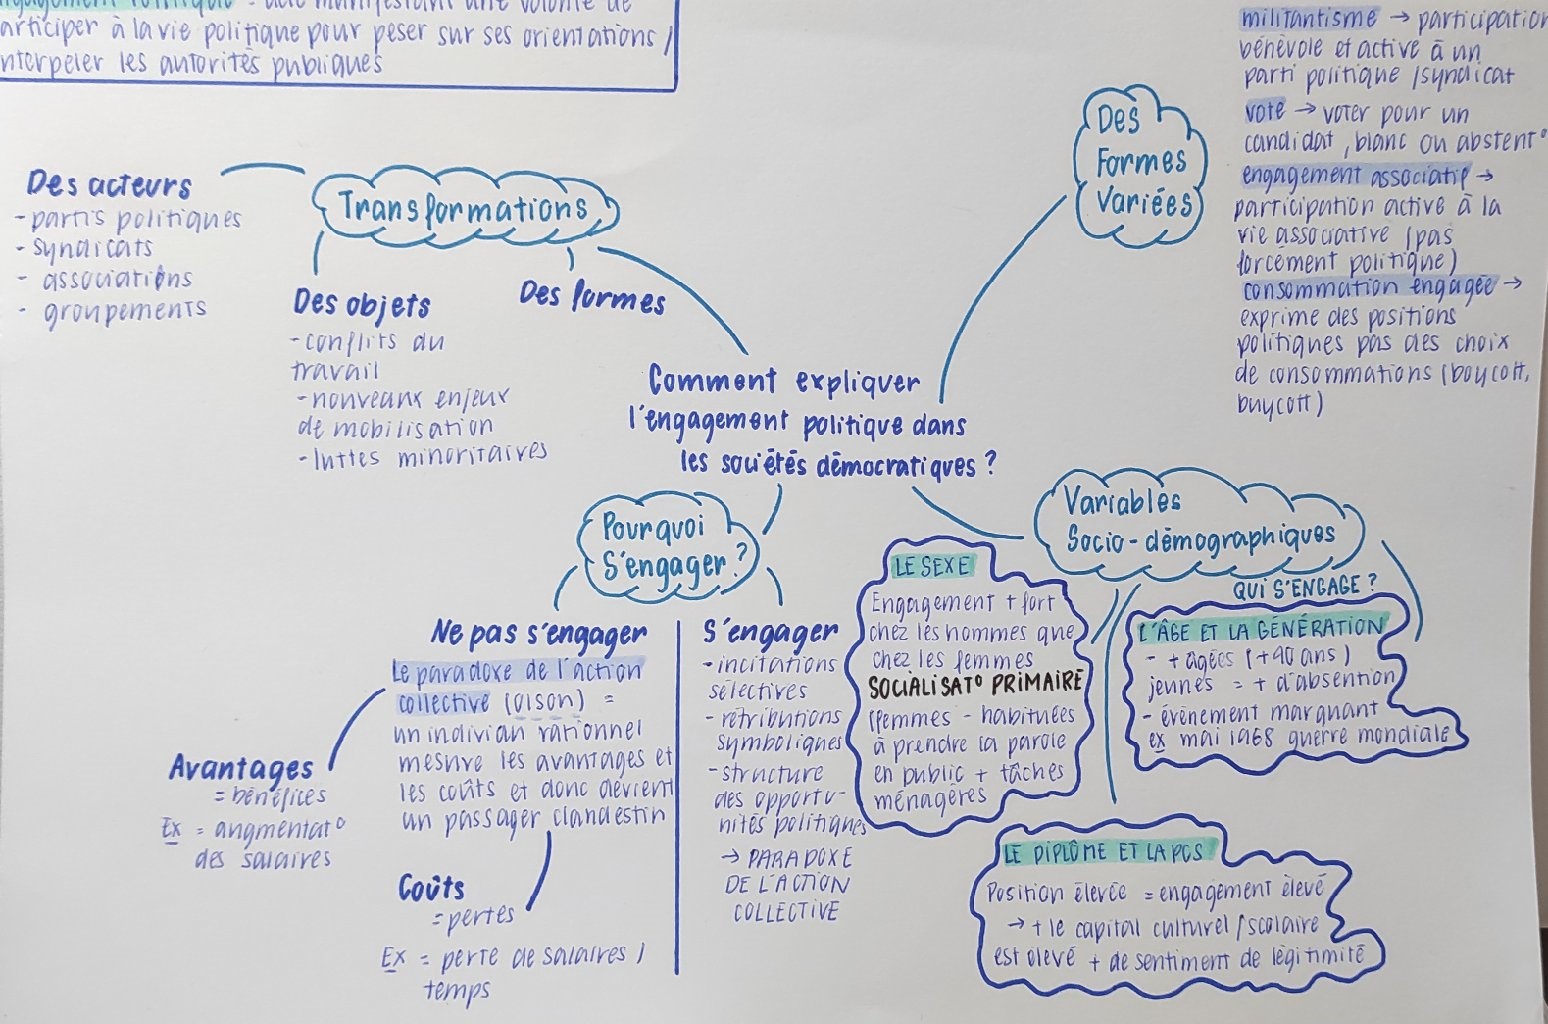 engagement politique = acte manifestant une volonté de
articiper à la vie politique pour peser sur ses orientations /
nterpeler les autorités publiques
militantisme → participation
bénévole et active à un
parti politique / syndicat
vote → voter pour un
candidat, blanc ou abstent°
engagement associatif →
participation active à la
vie associative (pas
forcément politique)
consommation engagée →
exprime des positions
politiques pas des choix
de consommations (boycott,
buycott)
Des
Formes
Variées
Transformations
Des acteurs
- partis politiques
- syndicats
- associations
- groupements
Des objets
- conflits du
travail
- nouveaux enjeux
de mobilisation
- luttes minoritaires
Des formes
Comment expliquer
l'engagement politique dans
les sociétés démocratiques ?
Pourquoi
S'engager ?
Ne pas s'engager
Le paradoxe de l'action
collective (olson) =
un individu rationnel
mesure les avantages et
les coûts et donc devient
un passager clandestin
Avantages
= bénéfices
Ex = augmentat°
des salaires
Coûts
= pertes
Ex = perte de salaires /
temps
S'engager
- incitations
sélectives
- rétributions
symboliques
- structure
des opportu-
nités politiques
→ PARADOXE
DE L'ACTION
COLLECTIVE
Variables
Socio-démographiques
QUI S'ENGAGE ?
LE SEXE
Engagement + fort
chez les hommes que
chez les femmes
SOCIALISAT° PRIMAIRE
(femmes - habituées
à prendre la parole
en public + tâches
ménagères
L'ÂGE ET LA GÉNÉRATION
- + âgées (+40 ans)
jeunes = + d'absention
- évènement marquant
ex mai 1968 guerre mondiale
LE DIPLÔME ET LA PCS
Position élevée = engagement élevé
→ + le capital culturel / scolaire
est élevé + de sentiment de légitimité